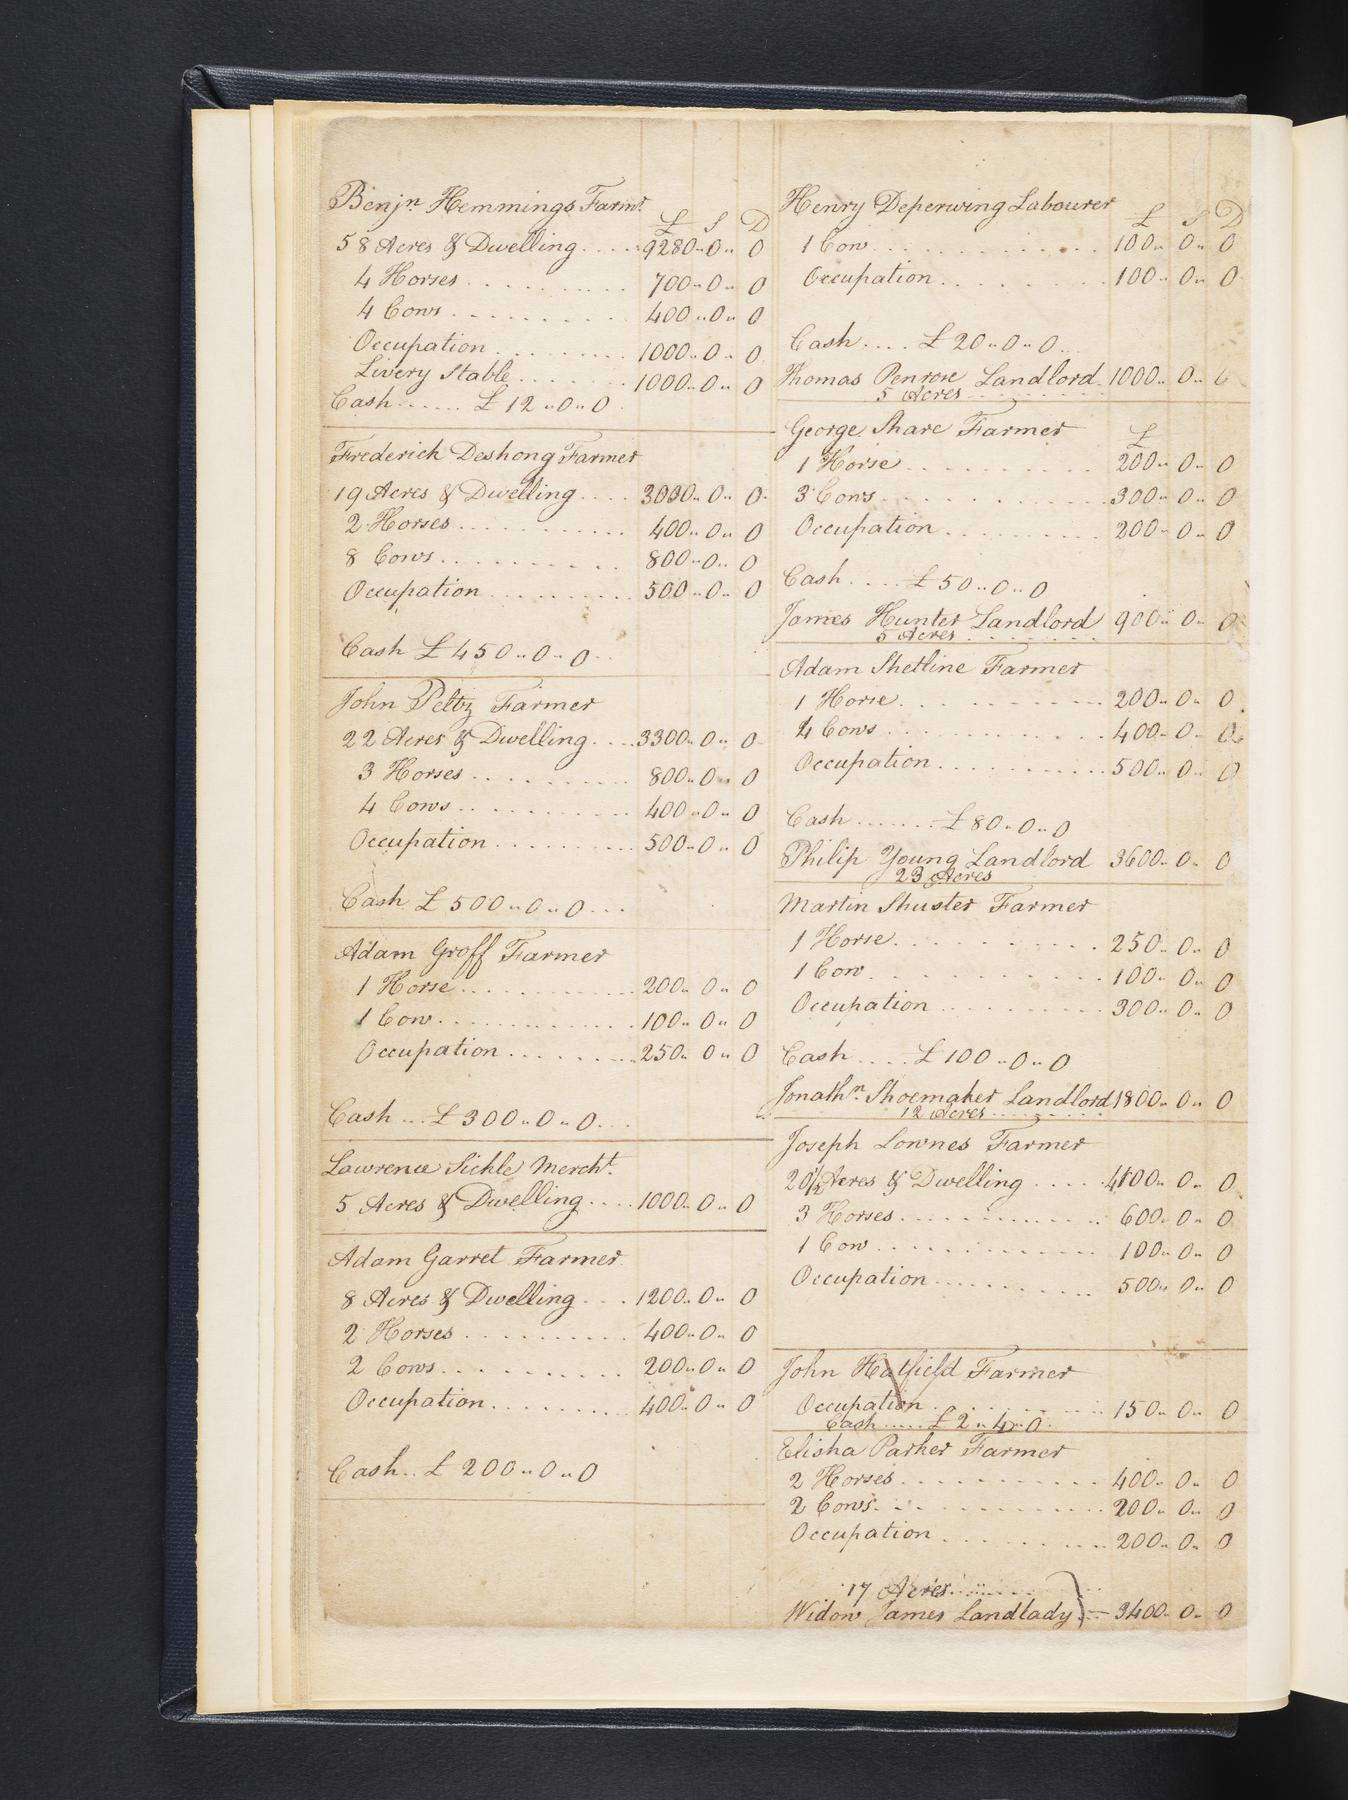 Benjn Hemmings Farmr
£ S D
58 Acres & Dwelling .... 9280..0..0
4 Horses .......... 700..0..0
4 Cows .......... 400..0..0
Occupation ......... 1000..0..0
Livery Stable ....... 1000..0..0
Cash ...... £12..0..0
Frederick Deshong Farmer
19 Acres & Dwelling .... 3000..0..0
2 Horses .......... 400..0..0
8 Cows .......... 800..0..0
Occupation ......... 500..0..0
Cash £450..0..0..
John Peltz Farmer
22 Acres & Dwelling .... 3300..0..0
3 Horses .......... 800..0..0
4 Cows .......... 400..0..0
Occupation .......... 500..0..0
Cash £500..0..0...
Adam Groff Farmer
1 Horse ........... 200..0..0
1 Cow ............ 100..0..0
Occupation ......... 250..0..0
Cash ... £300..0..0...
Lawrence Sickle Mercht.
5 Acres & Dwelling .... 1000..0..0
Adam Garret Farmer
8 Acres & Dwelling ... 1200..0..0
2 Horses .......... 400..0..0
2 Cows .......... 200..0..0
Occupation ......... 400..0..0
Cash .. £200..0..0
Henry Deperwing Labourer
£ S D
1 Cow ............ 100..0..0
Occupation ......... 100..0..0
Cash .... £20..0..0..
Thomas Penrose Landlord 1000..0..0
5 Acres .........
George Share Farmer
£
1 Horse .......... 200..0..0
3 Cows ........... 300..0..0
Occupation ......... 200..0..0
Cash .... £50..0..0
James Hunter Landlord 900..0..0
5 Acres ........
Adam Shetline Farmer
1 Horse .......... 200..0..0
4 Cows ........... 400..0..0
Occupation .......... 500..0..0
Cash ....... £80..0..0
Philip Young Landlord 3600..0..0
23 Acres
Martin Shuster Farmer
1 Horse .......... 250..0..0
1 Cow ........... 100..0..0
Occupation ......... 300..0..0
Cash .... £100..0..0
Jonathn. Shoemaker Landlord 1800..0..0
12 Acres .........
Joseph Lownes Farmer
20½ Acres & Dwelling .... 4100..0..0
3 Horses ........... 600..0..0
1 Cow ............ 100..0..0
Occupation ......... 500..0..0
John Hatfield Farmer
Occupation .......... 150..0..0
Cash ..... £2..4..0.
Elisha Parker Farmer
2 Horses .......... 400..0..0
2 Cows ........... 200..0..0
Occupation ......... 200..0..0
17 Acres .......
Widow James Landlady } 3400..0..0